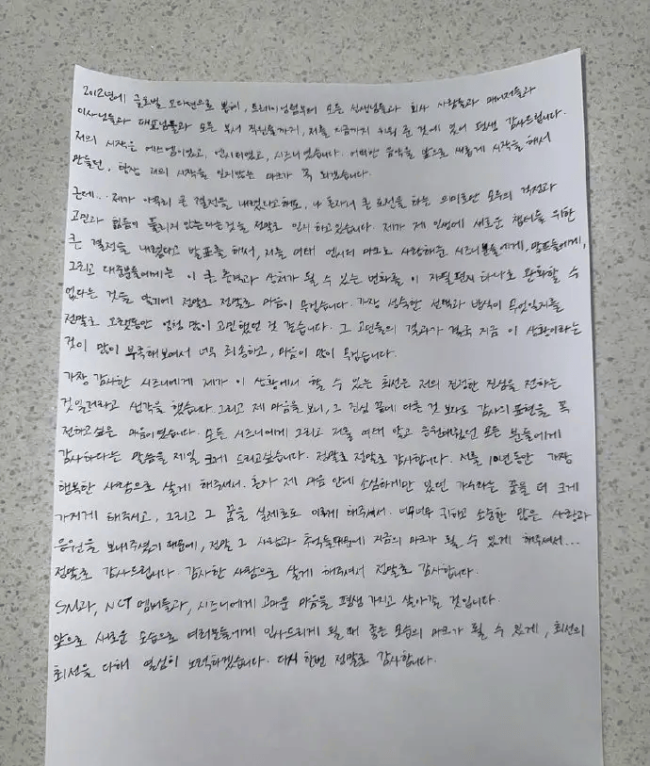 2012년에 글로벌 오디션으로 뽑혀, 트레이닝팀부터 모든 선생님들과 회사 사람들과 매니저들과
이사님들과 대표님들과 모든 부서 직원들까지, 저를 지금까지 키워 준 것에 있어 평생 감사드립니다.
저의 시작은 에스엠이었고, 엔시티였고, 시즈니였습니다. 어떠한 음악을 앞으로 새롭게 시작을 해서
만들던, 항상 저의 시작을 잊지않는 마크가 꼭 되겠습니다.
근데.. 제가 아무리 큰 결정을 내렸다고해도, 나 혼자의 큰 도전을 하는 의미로만 모두의 걱정과
고민과 힘듦에 풀리지 않는다는것을 정말로 인지하고있습니다. 제가 제 인생에 새로운 챕터를 위한
큰 결정을 내렸다고 발표를 해서, 저를 여태 엔시티 마크로 사랑해준 시즈니분들에게, 멤프들에게,
그리고 대중분들에게는 이 큰 충격과 상처가 될 수 있는 변화를 이 자필편지 하나로 완화할 수
없다는 것을 알기에 정말로 정말로 마음이 무겁습니다. 가장 성숙한 선택과 방식이 무엇일지를
정말로 오랫동안 엄청 많이 고민했던 것 같습니다. 그 고민들의 결과가 결국 지금 이 상황이라는
것이 많이 부족해보여서 너무 죄송하고, 마음이 많이 무겁습니다.
가장 감사한 시즈니에게 제가 이 상황에서 할 수 있는 최선은 저의 진정한 진심을 전하는
것일거라고 생각을 했습니다. 그리고 제 마음을 보니, 그 진심 끝에 다른 것 보다도 감사의 표현을 꼭
전하고싶은 마음이었습니다. 모든 시즈니에게 그리고 저를 여태 알고 응원해주었던 모든 분들에게
감사하다는 말씀을 제일 크게 드리고싶습니다. 정말로 정말로 감사합니다. 저를 10년동안 가장
행복한 사람으로 살게 해주셔서. 혼자 제 마음 안에 소심하게만 있었던 가수라는 꿈을 더 크게
가지게 해주시고, 그리고 그 꿈을 실제로도 이루게 해주셔서. 너무너무 귀하고 소중한 많은 사랑과
응원을 보내주셨기 때문에, 정말 그 사랑과 추억들때문에 지금의 마크가 될 수 있게 해주셔서...
정말로 감사드립니다. 감사한 사람으로 살게 해주셔서 정말로 감사합니다.
SM과, NCT 멤버들과, 시즈니에게 고마운 마음을 평생 가지고 살아갈 것입니다.
앞으로 새로운 모습으로 여러분들에게 인사드리게 될 때 좋은 모습의 마크가 될 수 있게, 최선의
최선을 다해 열심히 노력하겠습니다. 다시 한번 정말로 감사합니다.